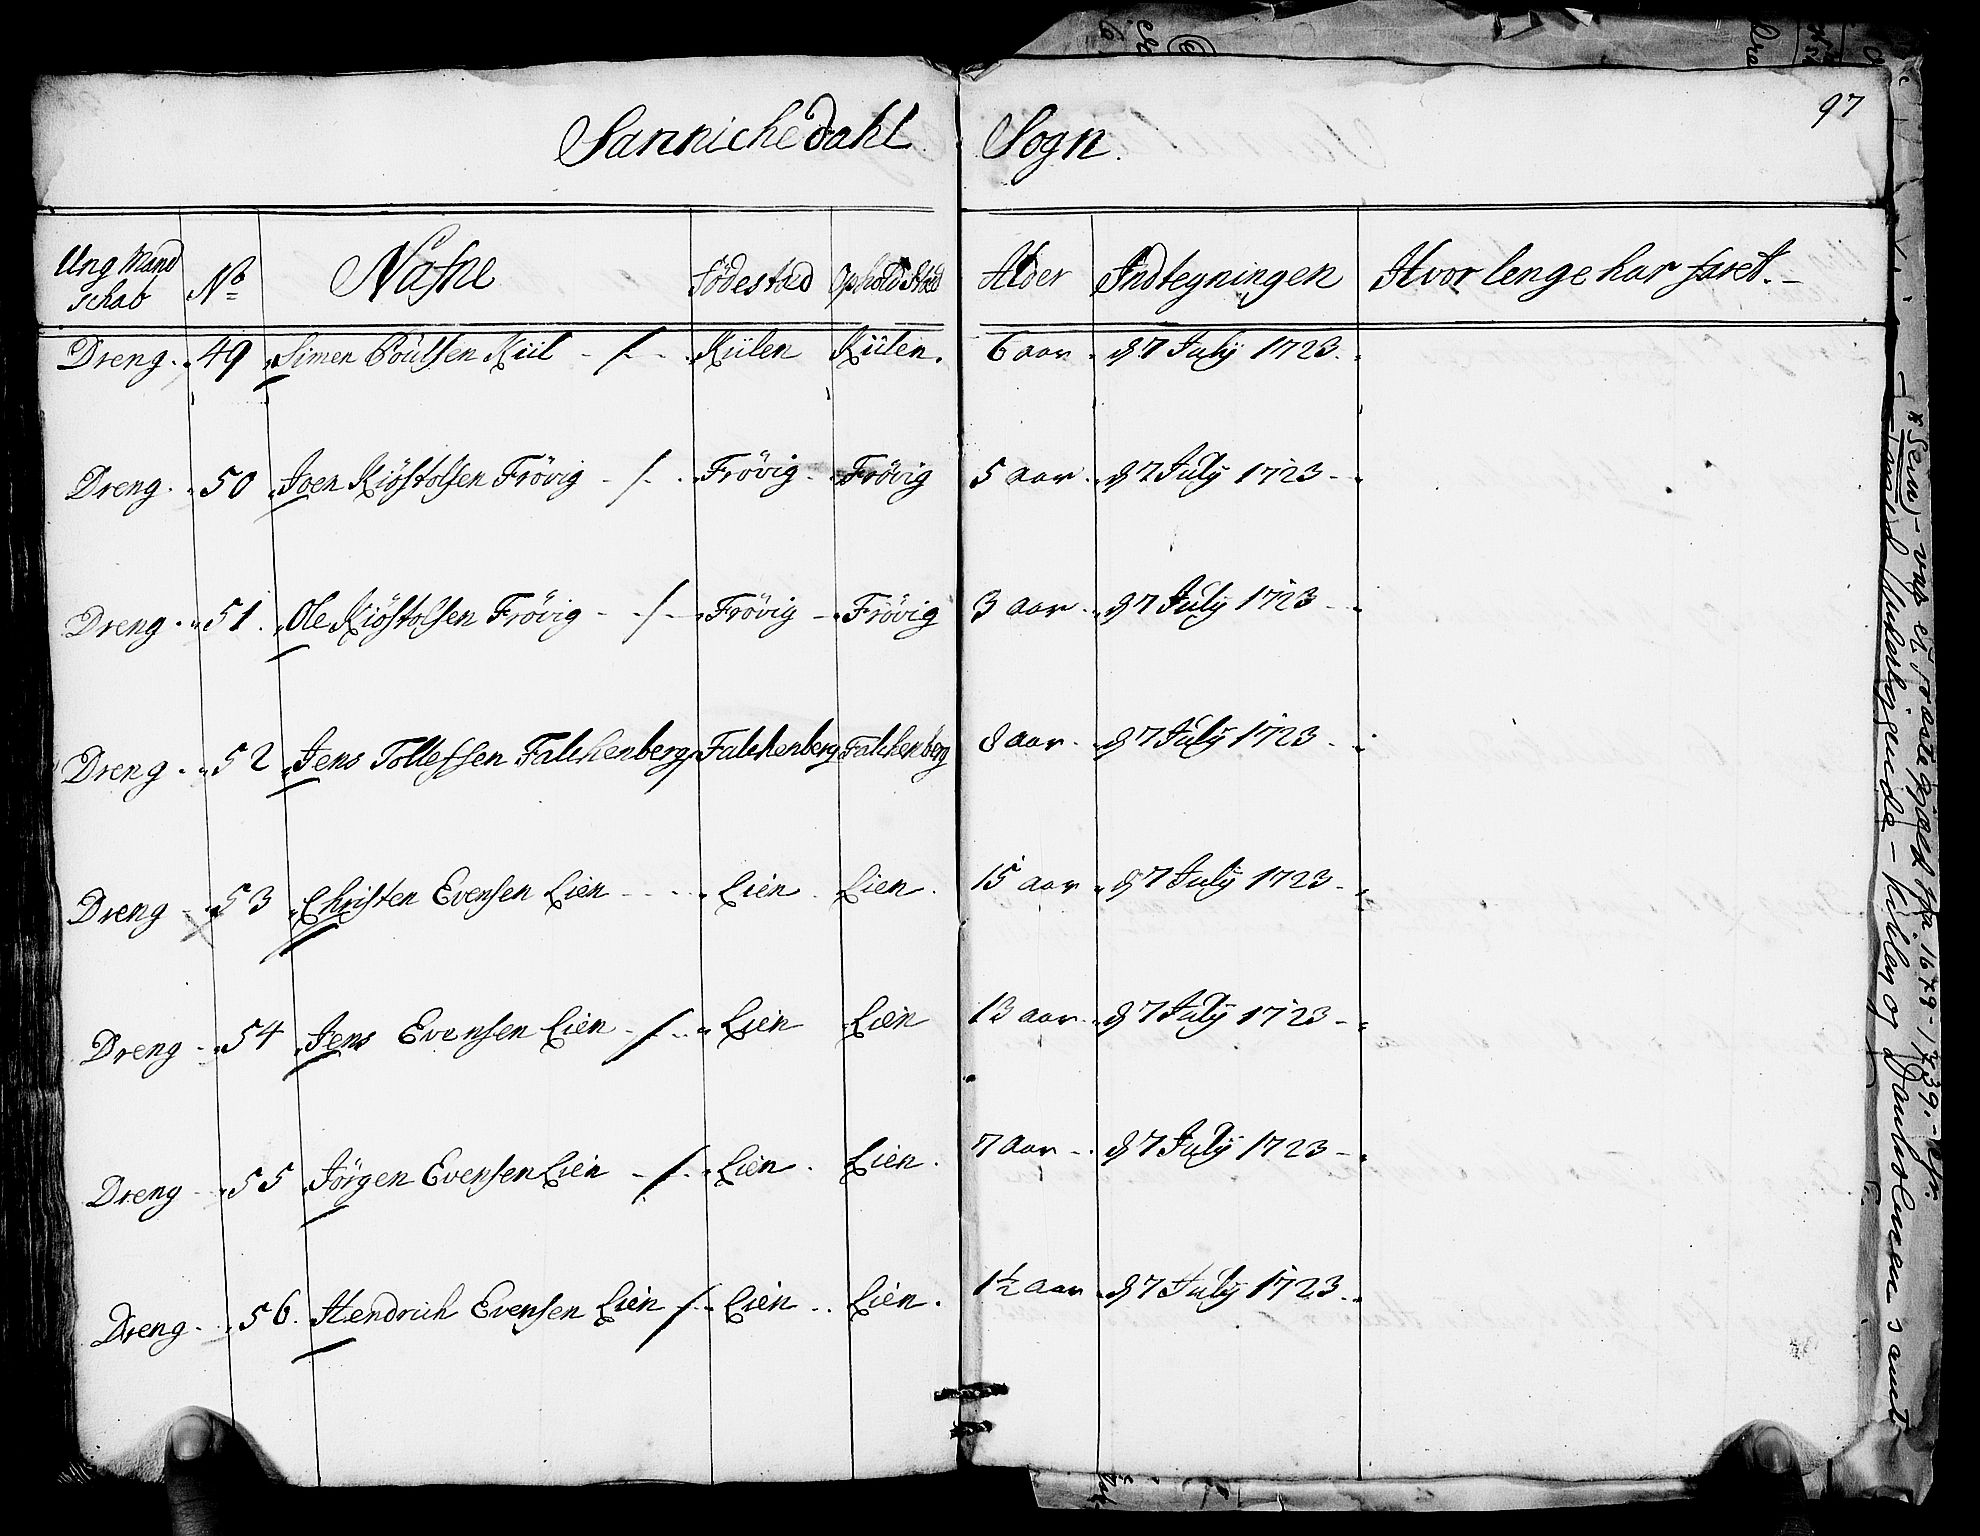 97
Sannichedahl Sogn.
Ung Mand schab No Nafne Födestæd Opholds Stæd Alder Indtegningen Hvor lenge har faret.-
Dreng. 49 Simen Poulsen Kiil Kiilen Kiilen. 6 aar d 7 July 1723.
Dreng. 50 Joen Kiöstolsen Frövig Frövig Frövig 5 aar d 7 July 1723
Dreng. 51. Ole Kiöstolsen Frövig Frövig Frövig 3 aar d 7 July 1723
Dreng. 52 Jens Tollefsen Falchenberg Falchenberg Falchenberg 8 aar d 7 July 1723
Dreng 53 Christen Evensen Lien Lien Lien. 15 aar d 7 July 1723
Dreng 54 Jens Evensen Lien Lien Lien 13 aar d 7 July 1723
Dreng 55 Jörgen Evensen Lien Lien. Lien. 7 aar d 7 July 1723
Dreng. 56. Hendrich Evensen Lien Lien Lien. 1½ aar d 7 July 1723
* Sem, - var et præstegjæld fra 1679-1739. - cfr.